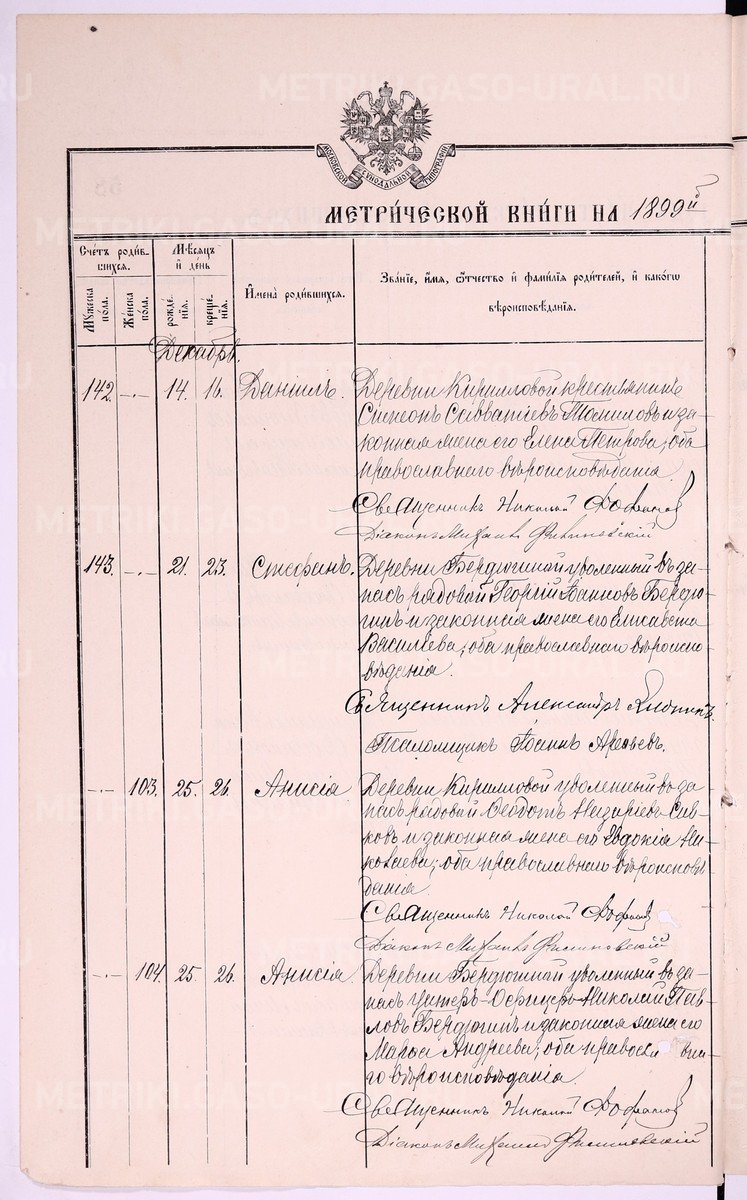 МОСКОВСКОЙ СѴНОДАЛЬНОЙ ТИПОГРАФІИ
МЕТРИ́ЧЕСКОЙ КНИ́ГИ НА 1899й
Сче́тъ роди́в-
шихся.
Му́жеска
по́ла.
Же́нска
по́ла.
Мѣ́сяцъ
и҆ де́нь
рожде́-
нїя.
креще́-
нїя.
И҆мена̀ роди́вшихся.
Зва́нїе, и҆́мя, ѻ҆́тчество и҆ фами́лїя роди́телей, и҆ како́гѡ
вѣроисповѣ́данїя.
Декабрь.
142. -·- 14. 16. Даніилъ. Деревни Кирилловой крестьянинъ
Симеонъ Савватіевъ Томиловъ и за-
конная жена его Елена Петрова; оба
православнаго вѣроисповѣданія.
Священникъ Николай
Діаконъ Михаилъ
143. -·- 21. 23. Стефанъ. Деревни Бердюгиной уволенный въ за-
пасъ рядовой Георгій Іоанновъ Бердю-
гинъ и законная жена его Елисавета
Василіева; оба православнаго вѣроиспо-
вѣданія.
Священникъ Александръ
Псаломщикъ Іоаннъ Арефьевъ.
-·- 103. 25. 26. Анисія. Деревни Кирилловой уволенный въ за-
пасъ рядовой Ѳеодотъ Назаріевъ Сав-
ковъ и законная жена его Евдокія Ни-
колаева; оба православнаго вѣроисповѣ-
данія.
Священникъ Николай
Діаконъ Михаилъ
-·- 104. 25. 26. Анисія. Деревни Бердюгиной уволенный въ за-
пасъ Унтеръ-Офицеръ Николай Пав-
ловъ Бердюгинъ и законная жена его
Марѳа Андреева; оба правосл
го вѣроисповѣданія.
Священникъ Николай
Діаконъ Михаилъ
METRIKI.GASO-URAL.RU